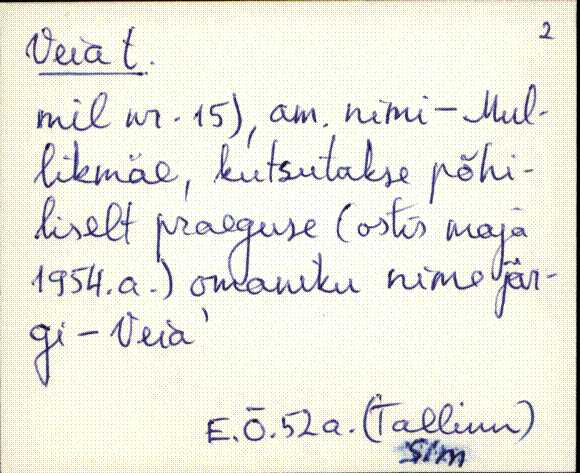 2
Veia t.
mil nr. 15), am. nimi - Mul-
likmäe, kutsutakse põhi-
liselt praeguse (ostis maja
1954.a.) omaniku nime jär-
gi - Veia'
E.Õ. 52 a. (Tallinn)
Sim